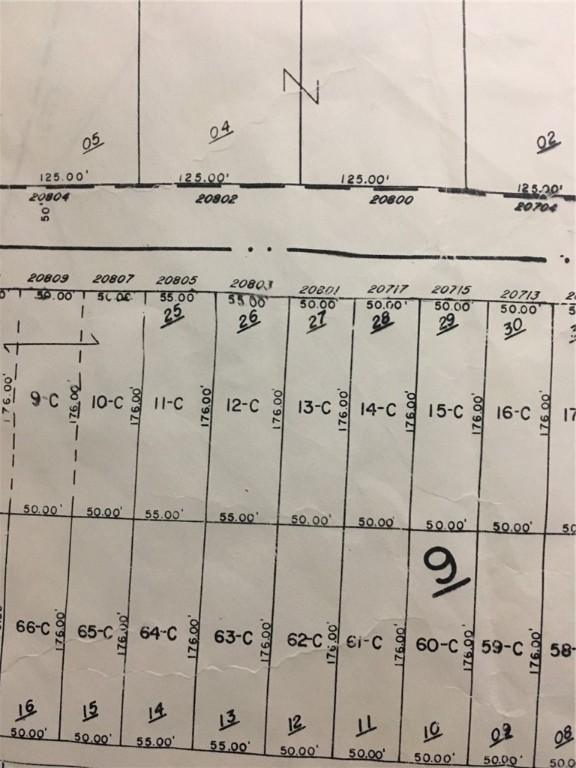 05 04 02
125.00' 125.00' 125.00' 125.00'
20804 20802 20800 20704
50
20809 20807 20805 20803 20717 20715 20713
50.00 55.00 55.00 50.00' 50.00' 50.00' 50.00'
25 26 27 28 29 30
176.00' 176.00' 176.00' 176.00' 176.00' 176.00' 176.00' 176.00' 176.00'
9-C 10-C 11-C 12-C 13-C 14-C 15-C 16-C 17
50.00' 50.00' 55.00' 55.00' 50.00' 50.00' 50.00' 50.00'
9
66-C 65-C 64-C 63-C 62-C 61-C 60-C 59-C 58-
176.00' 176.00' 176.00' 176.00' 176.00' 176.00' 176.00' 176.00'
16 15 14 13 12 11 10 08
50.00' 50.00' 55.00' 55.00' 50.00' 50.00' 50.00' 50.00' 50.0